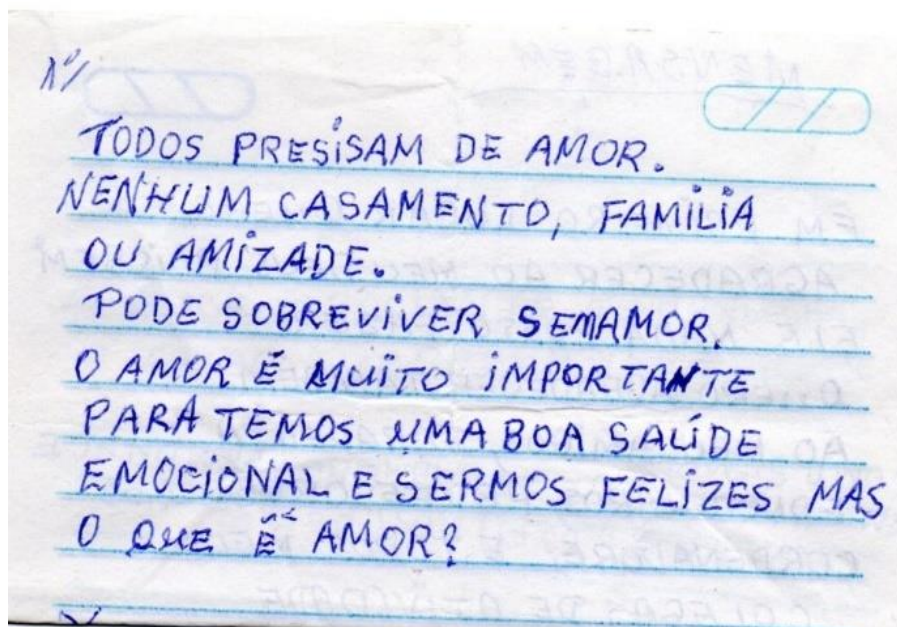 Nº/
TODOS PRESISAM DE AMOR.
NENHUM CASAMENTO, FAMILIA
OU AMIZADE.
PODE SOBREVIVER SEMAMOR.
O AMOR É MUITO IMPORTANTE
PARA TEMOS UMA BOA SAÚDE
EMOCIONAL E SERMOS FELIZES MAS
O QUE É AMOR?